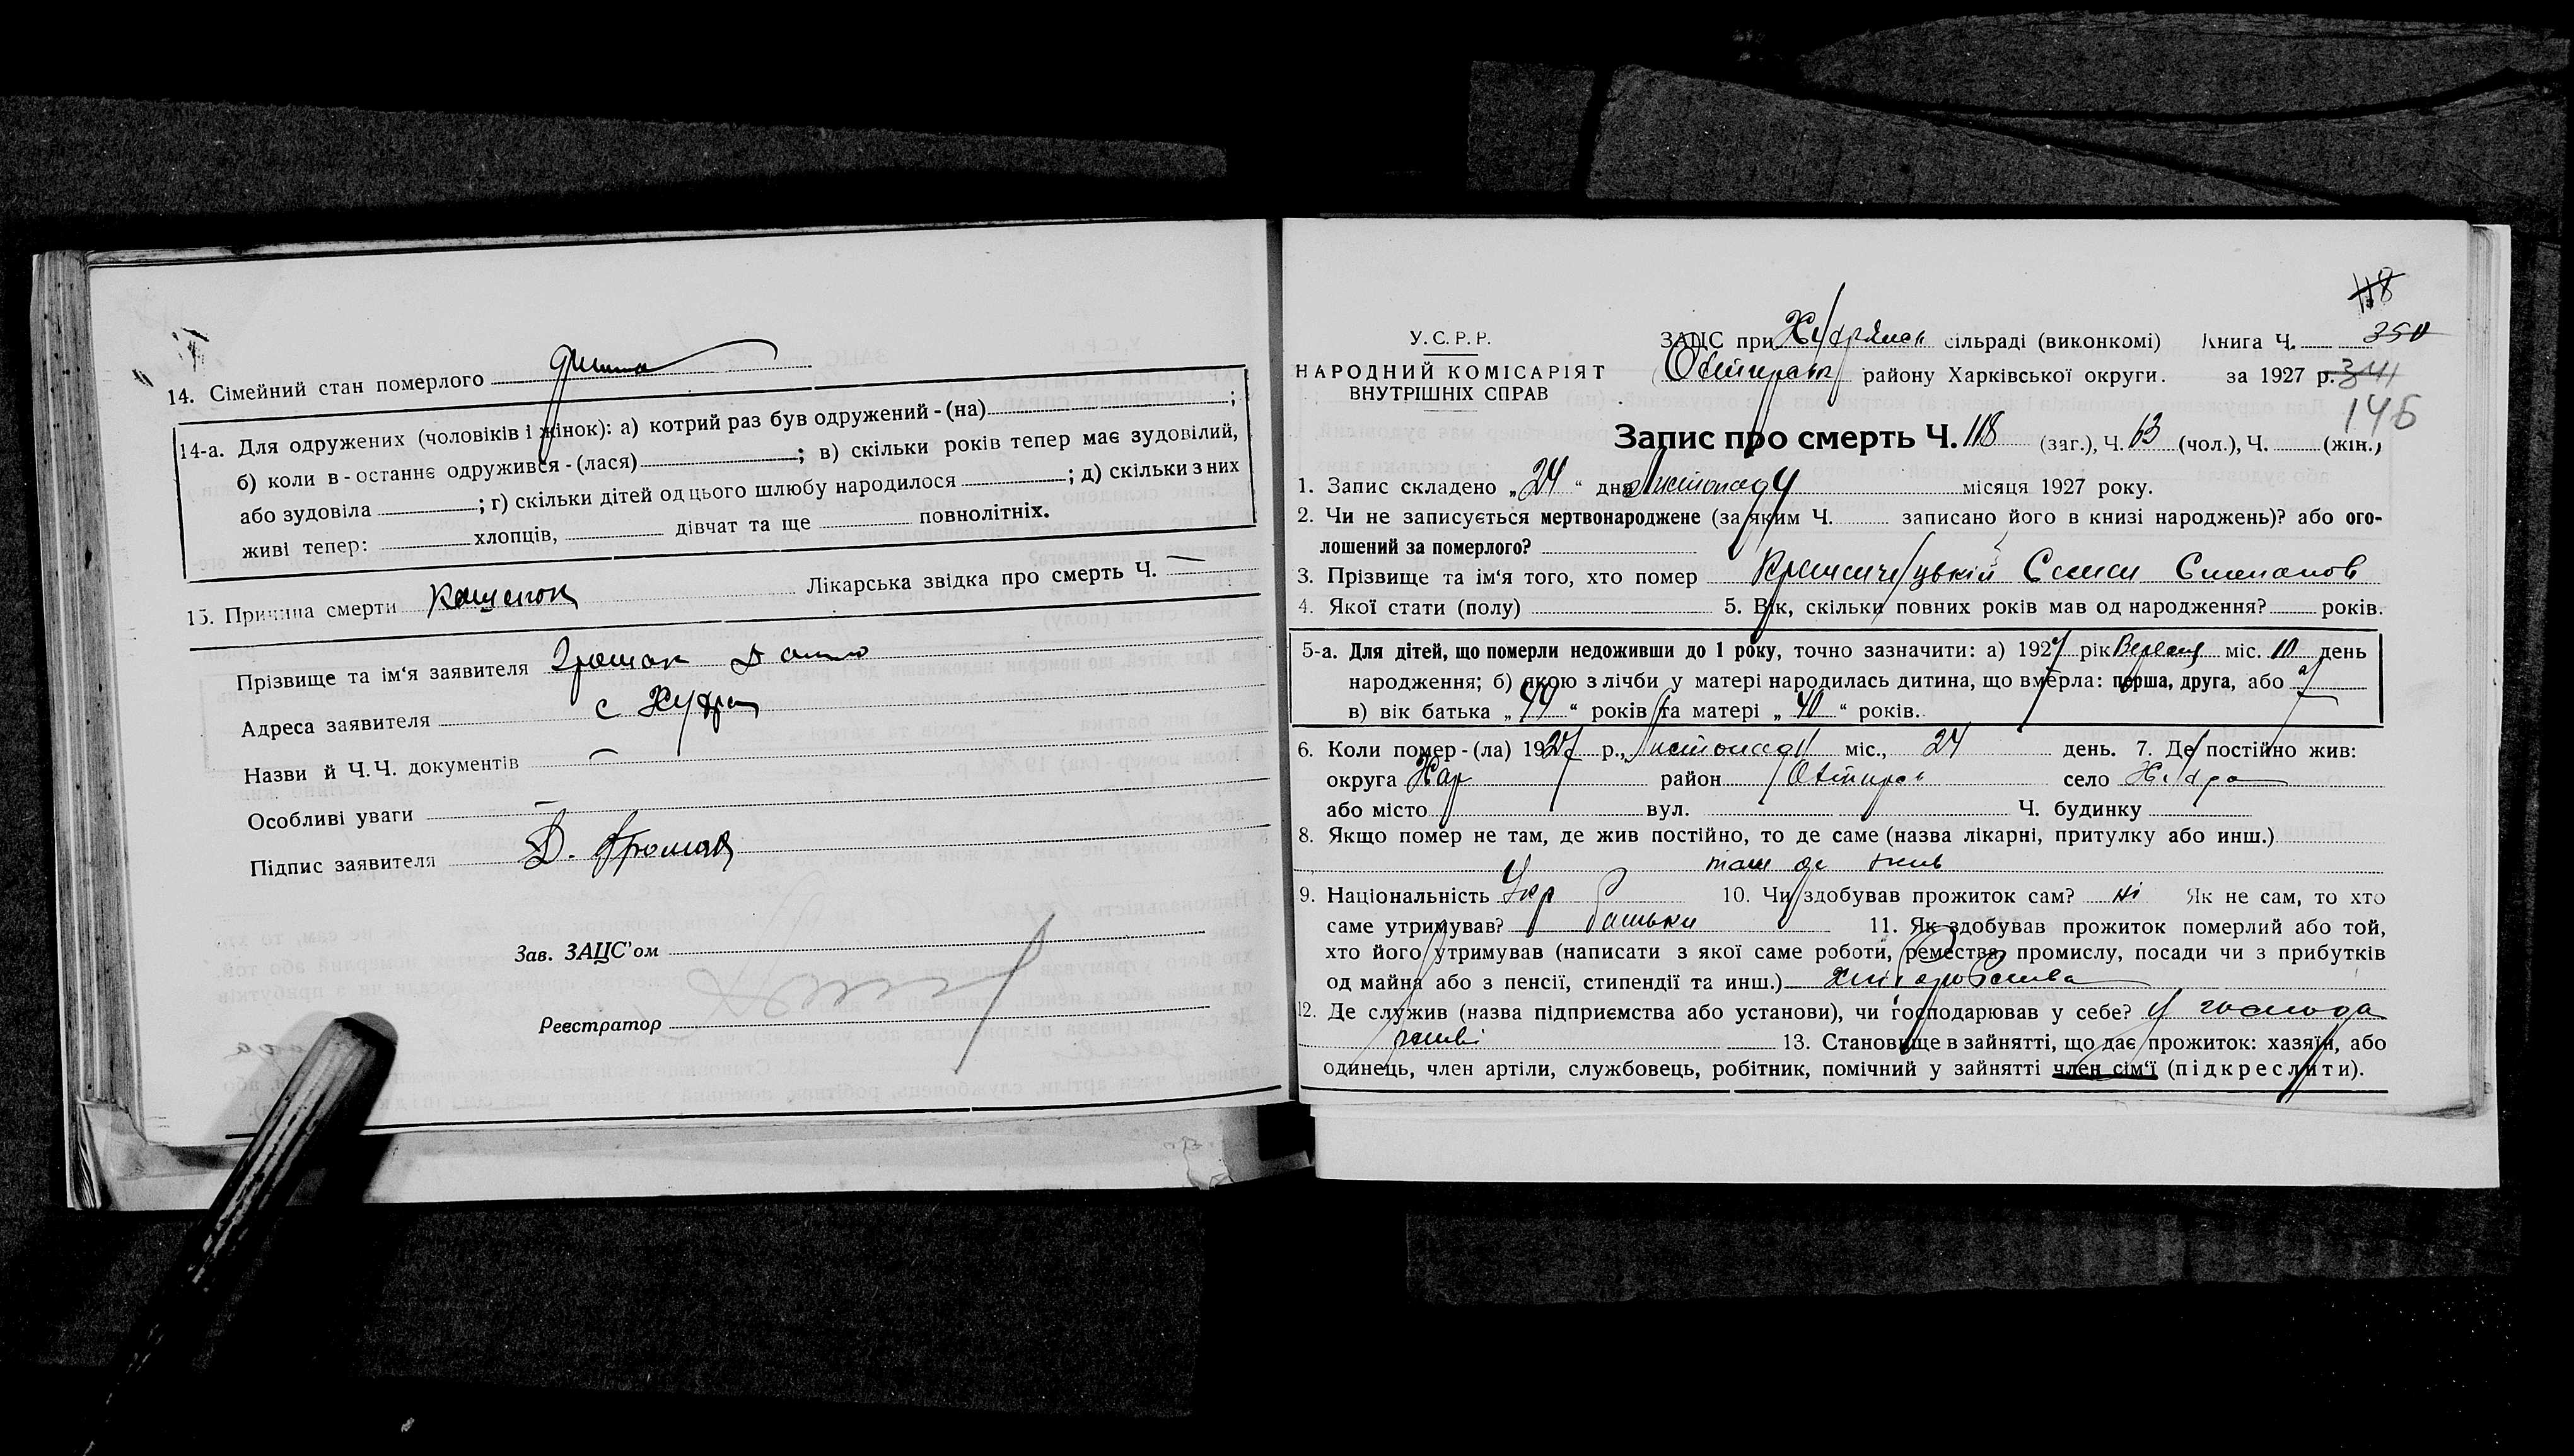 14. Сімейний стан померлого
14-а. Для одружених (чоловіків і жінок): а) котрий раз був одружений - (на) ;
б) коли в-останнє одружився - (лася) ; в) скільки років тепер має зудовілий,
або зудовіла ; г) скільки дітей од цього шлюбу народилося ; д) скільки з них
живі тепер: хлопців, дівчат та ще повнолітніх.
15. Причина смерти Лікарська звідка про смерть Ч. —
Прізвище та ім'я заявителя
Адреса заявителя с
Назви й Ч.Ч. документів —
Особливі уваги —
Підпис заявителя Д.
Зав. ЗАЦС'ом
Реєстратор
118
У.С.Р.Р.
НАРОДНИЙ КОМІСАРІЯТ
ВНУТРІШНІХ СПРАВ
ЗАЦС при сільраді (виконкомі) Книга Ч. 350
району Харківської округи. за 1927 р. 341
146
Запис про смерть Ч. 118 (заг.), Ч. 63 (чол.), Ч. (жін.)
1. Запис складено „24“ дня Листопаду місяця 1927 року.
2. Чи не записується мертвонароджене (за яким Ч. записано його в книзі народжень)? або ого-
лошений за померлого?
3. Прізвище та ім'я того, хто помер Степанов
4. Якої стати (полу) 5. Вік, скільки повних років мав од народження? років.
5-а. Для дітей, що померли недоживши до 1 року, точно зазначити: а) 1927 рік міс. 10 день
народження; б) якою з лічби у матері народилась дитина, що вмерла: перша, друга, або
в) вік батька „44“ років та матері „40“ років.
6. Коли помер - (ла) 1927 р., Листопаду міс., 24 день. 7. Де постійно жив:
округа Хар район село
або місто вул. Ч. будинку
8. Якщо помер не там, де жив постійно, то де саме (назва лікарні, притулку або инш.)
там де жив
9. Національність Укр 10. Чи здобував прожиток сам? ні Як не сам, то хто
саме утримував? батьки 11. Як здобував прожиток померлий або той,
хто його утримував (написати з якої саме роботи, ремества, промислу, посади чи з прибутків
од майна або з пенсії, стипендії та инш.) хліборобства
12. Де служив (назва підприємства або установи), чи господарював у себе? у господа
рстві 13. Становище в зайнятті, що дає прожиток: хазяїн, або
одинець, член артіли, службовець, робітник, помічний у зайнятті член сім'ї (підкреслити).